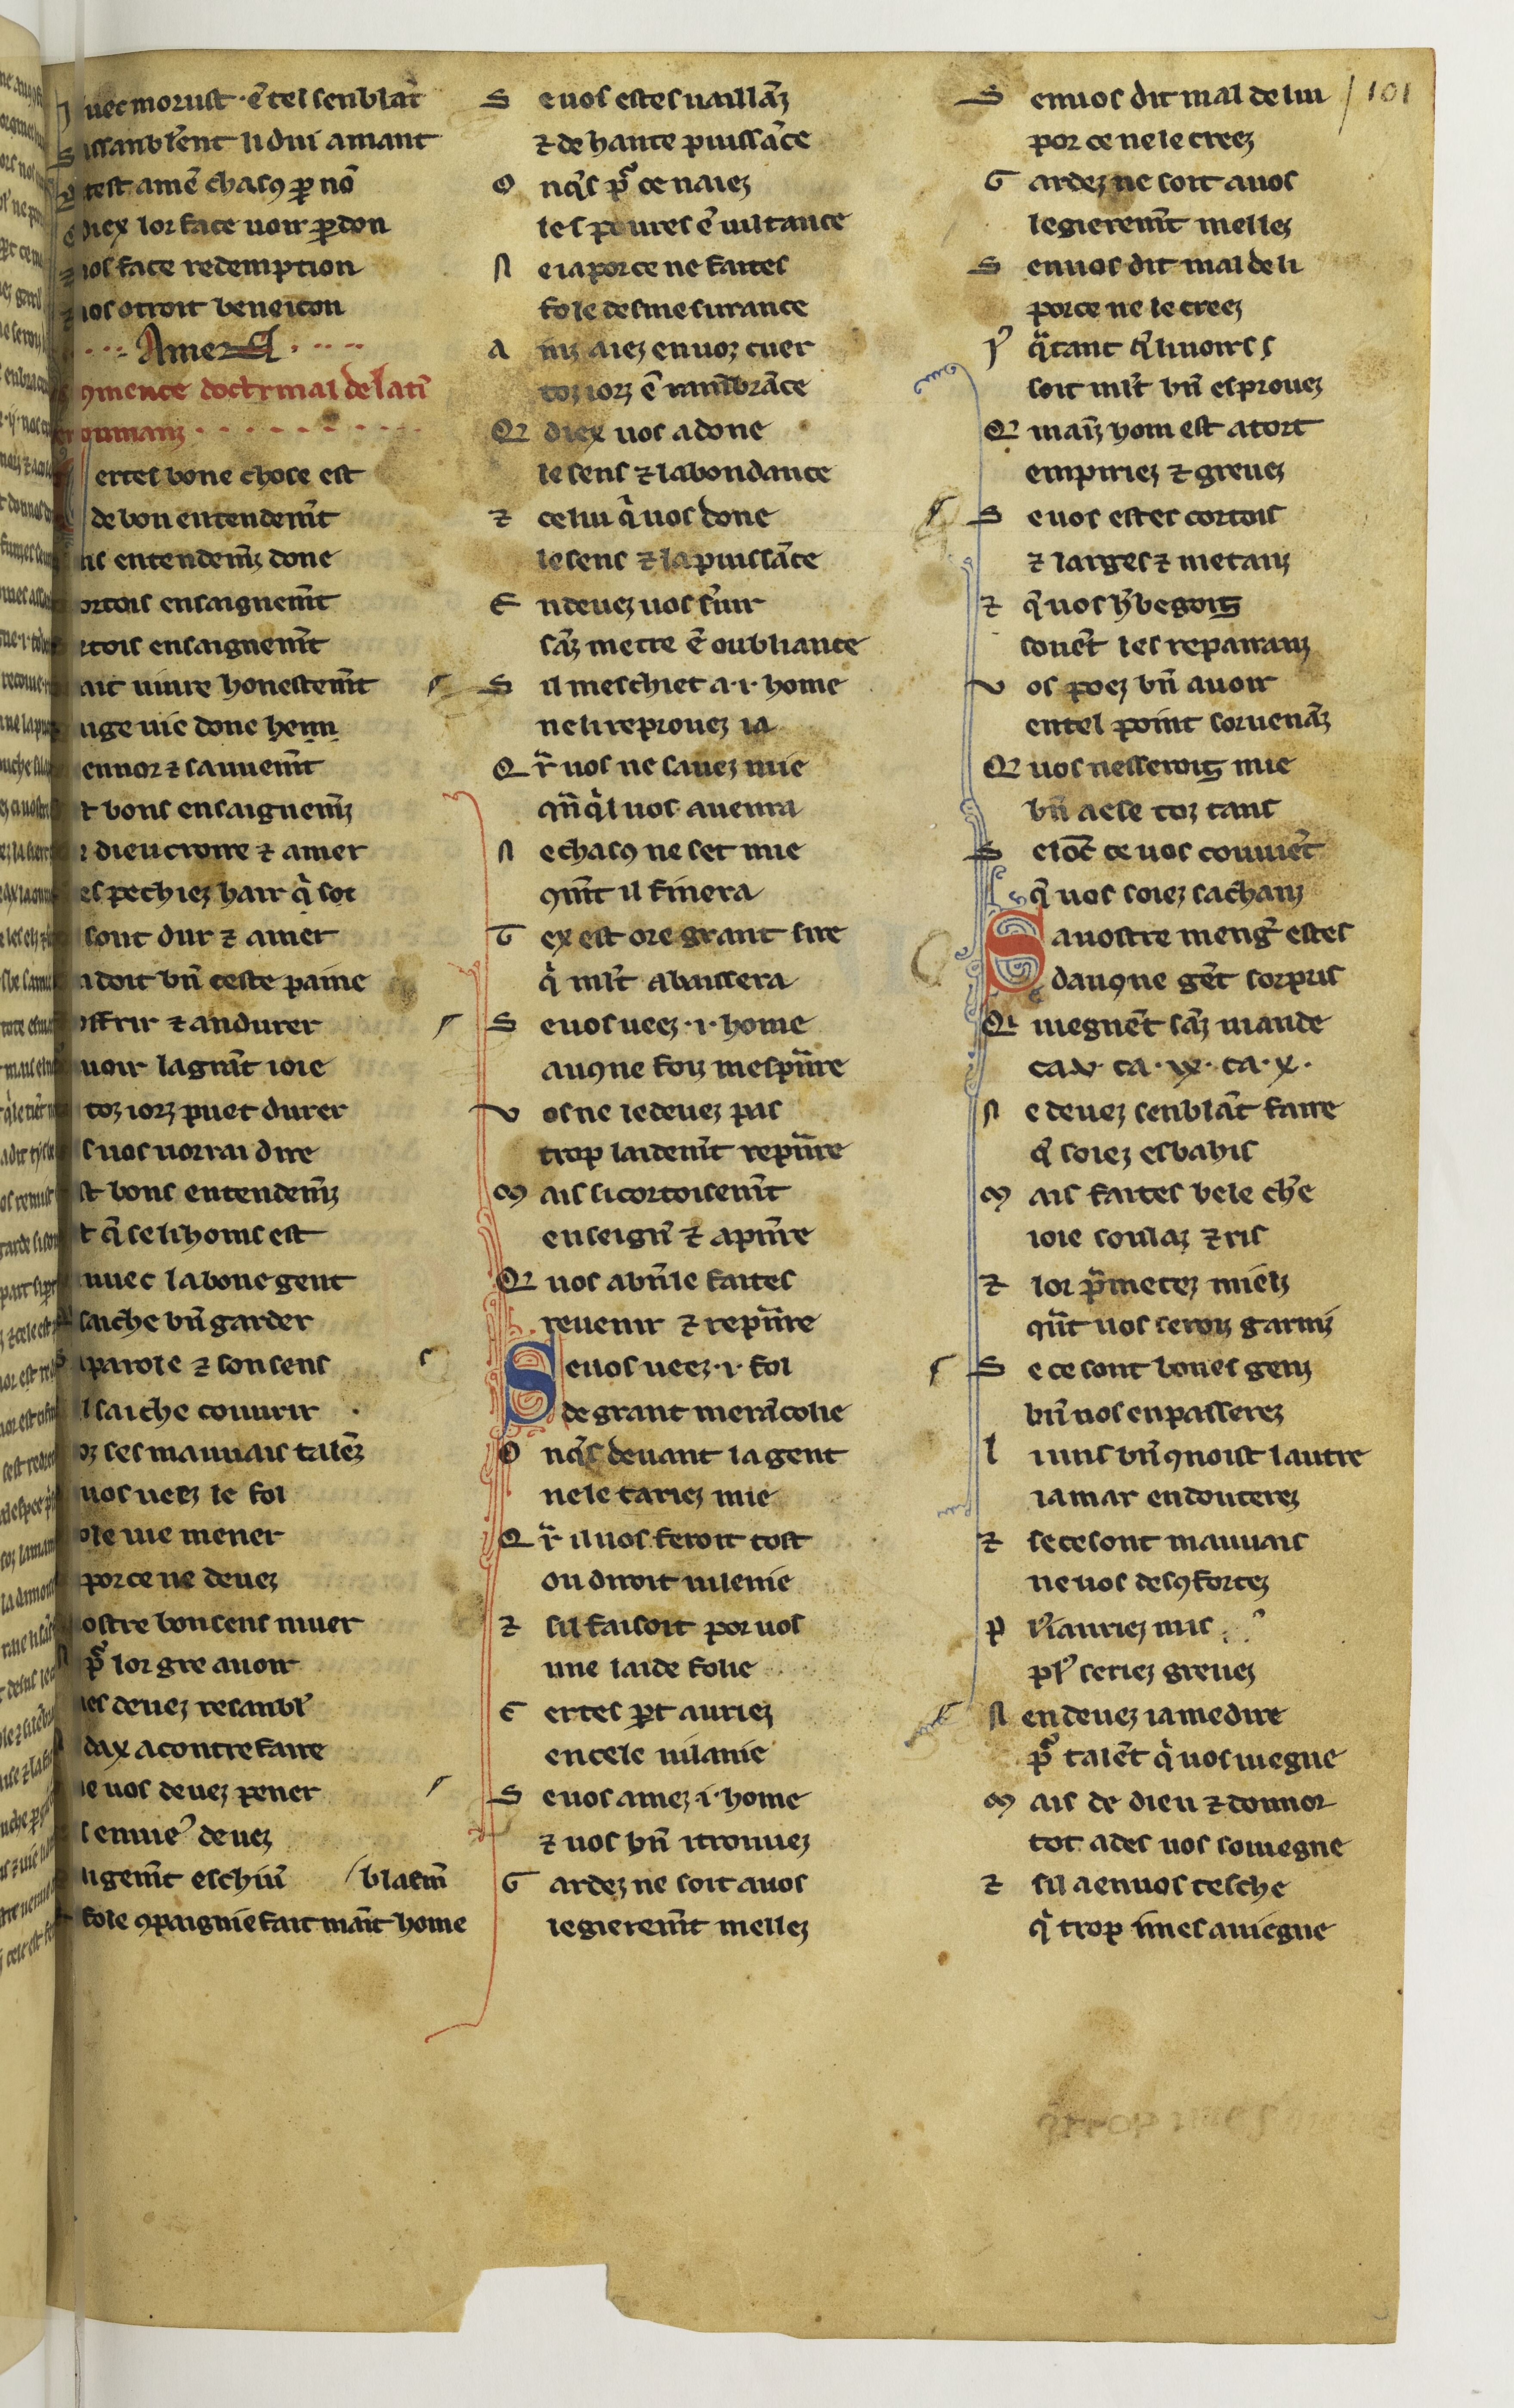 uec morust · ē tel senblāt
assanblerent li dui amant
test amē chasꝯ ꝑ nō
diex lor face uoir ꝑdon
nos face redemption
nos otroit beneicon
Amen
ꝯmence doctrinal de latī
roumanz
ertes bone chose est
de bon entendem̄t
entendem̄z done
ortois ensaignem̄t
rtois ensaignem̄t
ait uiure honestem̄t
uie done henn
ennor ⁊ sauuem̄t
t bons ensaignem̄z
dieu croire ⁊ amer
es pechiez hair q̇ sot
sont dur ⁊ amer
doit bn̄ ceste paine
offrir ⁊ andurer
uoir la grāt ioie
toz iorz puet durer
s uos uorrai dire
st bons entendem̄z
t q̄ se li homs est
auec la bone gent
saiche bn̄ garder
parole ⁊ son sens
saiche couurir
oz ses mauuais talēz
uos ueez le fol
ole uie mener
por ce ne deuez
ostre bon sens muer
pͬ lor gre auoir
les deuez resanblᷣ
dax a contrefaire
ne uos deuez pener
s enuieᷣ deuez
ugem̄t eschiuᷣ / blasm̄
fole ꝯpaignie fait māt home
S e uos estes uaillāz
⁊ de haute puissāce
O nq̄s pͬ ce naiez
les poures ē uiltance
N e ia por ce ne faites
fole desmesurance
A inz aiez en uoz cuer
toz iorz ē ramībrāce
Q diex uos a done
le sens ⁊ labondance
⁊ celui q̇ uos done
le sens ⁊ la puissāce
E n deuez uos sᷣuir
sāz metre ē oubliance
S il meschiet a · i · home
ne li reprouez ia
Q r̄ uos ne sauez mie
qm̄ q̇l uos auenra
N e chasꝯ ne set mie
ꝯm̄t il finera
T ex est ore grant sire
q̇ ml̄t abaissera
S e uos ueez · i · home
auꝯne foiz mespn̄re
V os ne le deuez pas
trop laidem̄t repn̄re
M ais si cortoisem̄t
enseignᷣ ⁊ apn̄re
Q uos a bn̄ le faites
reuenir ⁊ repn̄re
S e uos ueez · i · fol
de grant merācolie
O nq̄s deuant la gent
ne le tariez mie
Q r̄ il uos feroit tost
ou diroit uilenie
⁊ sil faisoit por uos
une laide folie
C ertes ꝑt auriez
en cele uilanie
S e uos amez · i · home
⁊ uos bn̄ i trouuez
G ardez ne soit a uos
legierem̄t mellez
S en uos dit mal de lui / 101
por ce ne le creez
G ardez ne soit a uos
legierem̄t mellez
S en uos dit mal de li
por ce ne le creez
q̄ tant q̄ li uoirs s
soit ml̄t bn̄ esprouez
Q mainz hom est a tort
empiriez ⁊ greuez
S e uos estes cortois
⁊ larges ⁊ metanz
⁊ q̄ uos hᷣbegoiz
souēt les repairanz
V os poez bn̄ auoir
en tel point soruenāz
Q uos nesseroiz mie
bn̄ a ese toz tans
S elōc ce uos couuiēt
q̄ uos soiez sachanz
S a uostre mengᷣ estes
dauꝯne gēt sorpris
Q uiegnēt sāz mande
ca · v · ca · ix · ca · x ·
N e deuez senblāt faire
q̄ soiez esbahis
M ais faites bele chᷣe
ioie soulaz ⁊ ris
⁊ lor pͣmetez mielz
qn̄t uos seroiz garniz
S e ce sont bones genz
bn̄ uos en passerez
L iuns bn̄ ꝯnoist lautre
ia mar en douterez
⁊ se ce sont mauuais
ne uos desꝯfortez
P riꝰ auriez mis
plᷣ seriez greuez
N en deuez ia medire
pͬ talēt q̇ uos uiegne
M ais de dieu ⁊ donnor
tot ades uos souiegne
⁊ sil a en uos tesche
q̇ trop īmesauiegne